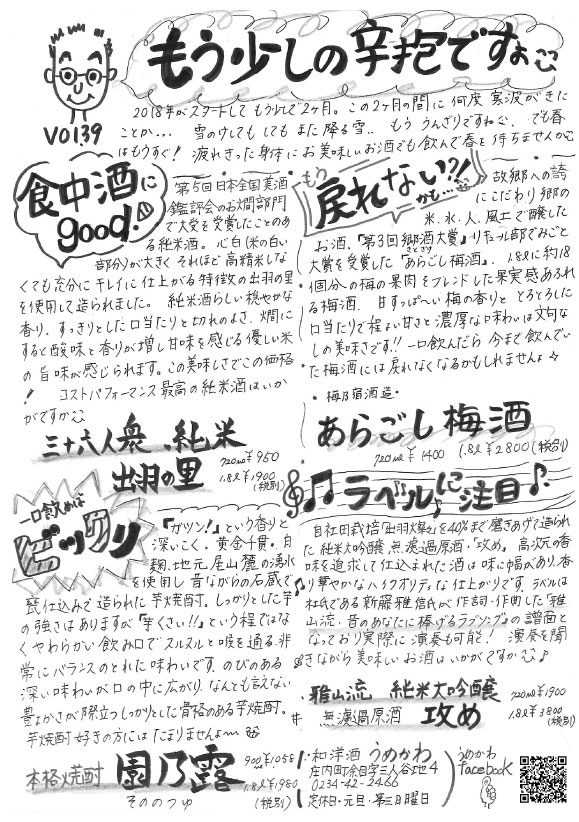 もう少しの辛抱ですぉ
VOL39
2018年がスタートして もう少しで2ヶ月。この2ヶ月の間に 何度 寒波がきた
ことか・・・ 雪のけても しても また 降る雪.. もう うんざりですねぇ、 でも春
はもうすぐ! 疲れきった身体に お美味しいお酒でも飲んで春を 待ちませんか
食中酒に
good!
第5回日本全国美酒
鑑評会のお燗部門
で大受を受賞したことのあ
る純米酒。心白(米の白い
部分)が大きく それほど 高精米しな
くても充分に キレイに仕上がる 特徴の出羽の里
を使用して造られました。 純米酒らしい 穏やかな
香り、すっきりとした口当たりと 切れのよさ、燗に
すると酸味と香りが増し 甘味を感じる 優しい米
の旨味が感じられます。この美味しさでこの価格
! コストパフォーマンス最高の純米酒はいか
がですか
三十六人衆、純米
出羽の里
720ml ¥950
1.8l ¥1900
(税別)
もう
戻れない?!
かも…
故郷への誇
にこだわり郷の
米、水、人、風土で醸した
お酒、『第3回郷酒大賞』リキュール部でみごと
大賞を受賞した『あらごし梅酒』. 1.8lに約18
個分の梅の果肉をブレンドした果実感あふれ
る梅酒. 甘ずっぱ〜い梅の香りと とろとろした
口当たりで程よい甘さと濃厚な味わいは文句な
しの美味さです!! 一口飲んだら 今まで飲んでい
た梅酒には戻れなくなるかもしれませんよ☆
・梅乃宿酒造・
あらごし梅酒
720ml ¥1400
1.8l ¥2800(税別)
一口飲めば
ビックリ
『ガツン!』という香りと
深いこく、黄金千貫、白
麹、地元、尾山麓の湧水
を使用し 昔ながらの石蔵で
甕仕込みで造られた芋焼酎。しっかりとした芋
の強さはありますが『芋くさい!!』という程ではな
くやわらかい飲み口で スルスルと喉を通る、非
常にバランスのとれた味わいです、のびのある
深い味わいが口の中に広がり、なんとも言えない
豊かさが際立つしっかりとした骨格のある芋焼酎。
芋焼酎好きの方には たまりませんよ〜
本格焼酎
園乃露
そののつゆ
900ml ¥1058
1.8l ¥1980
(税別)
ラベルに注目
自社田栽培「出羽燦々」を40%まで磨きあげて造られ
た純米大吟醸、無濾過原酒『攻め』. 高次元の香
味を追求して仕込まれた酒は味に幅があり、香
り華やかなハイクオリティな仕上がりです、ラベルは
杜氏である新藤雅信氏が作詞・作曲した『雅
山流・昔のあなたに捧げるラプソング』の譜面と
なっており 実際に演奏も可能! 演奏を聞
きながら美味しいお酒はいかがですか♪
雅山流 純米大吟醸
無濾過原酒 攻め
720ml ¥1900
1.8l ¥3800
(税別)
和洋酒 うめかわ
庄内町余目字三人谷地4
0234-42-2466
定休日・元旦・第三日曜日
うめかわ
facebook